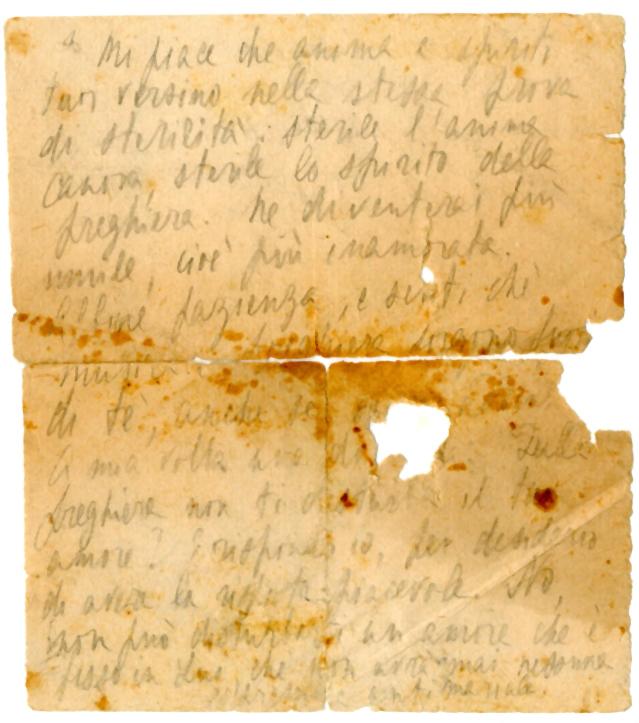 Mi piace che anima e spirito
tuoi versino nella stessa prova
di sterilità: sterile l'anima
canora, sterile lo spirito della
preghiera. Ne diventerai più
umile, cioè più inamorata.
pazienza, e senti che
preghiera sorgono fuor
di te, anche se
A mia volta Nella
preghiera non ti disturba il tuo
amore? E rispondo io, per desiderio
di aver la risposta piacevole. No,
non può disturbarti un amore che è
fisso in che non avrà mai nessuna